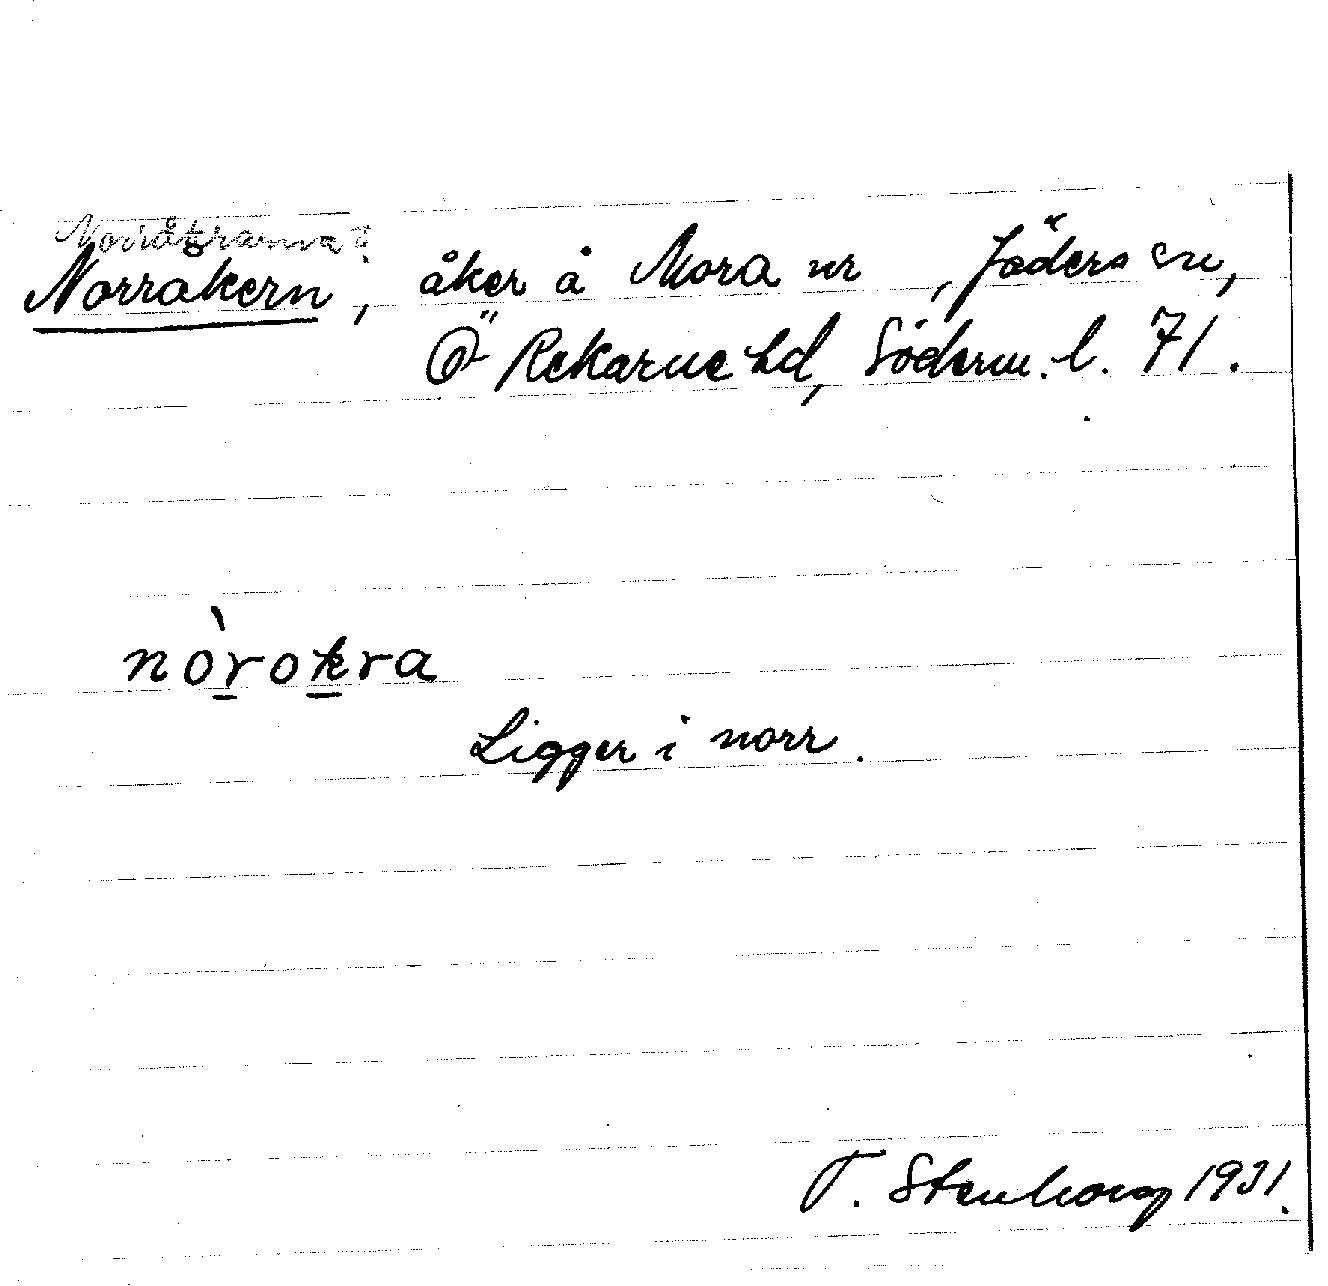 Norråkrarna?
Norrakern, åker å Mora nr , Jäders sn,
Ö Rekarne hd, Söderm. l. 71.
nòrokra
Ligger i norr.
T. Stenborg 1931.